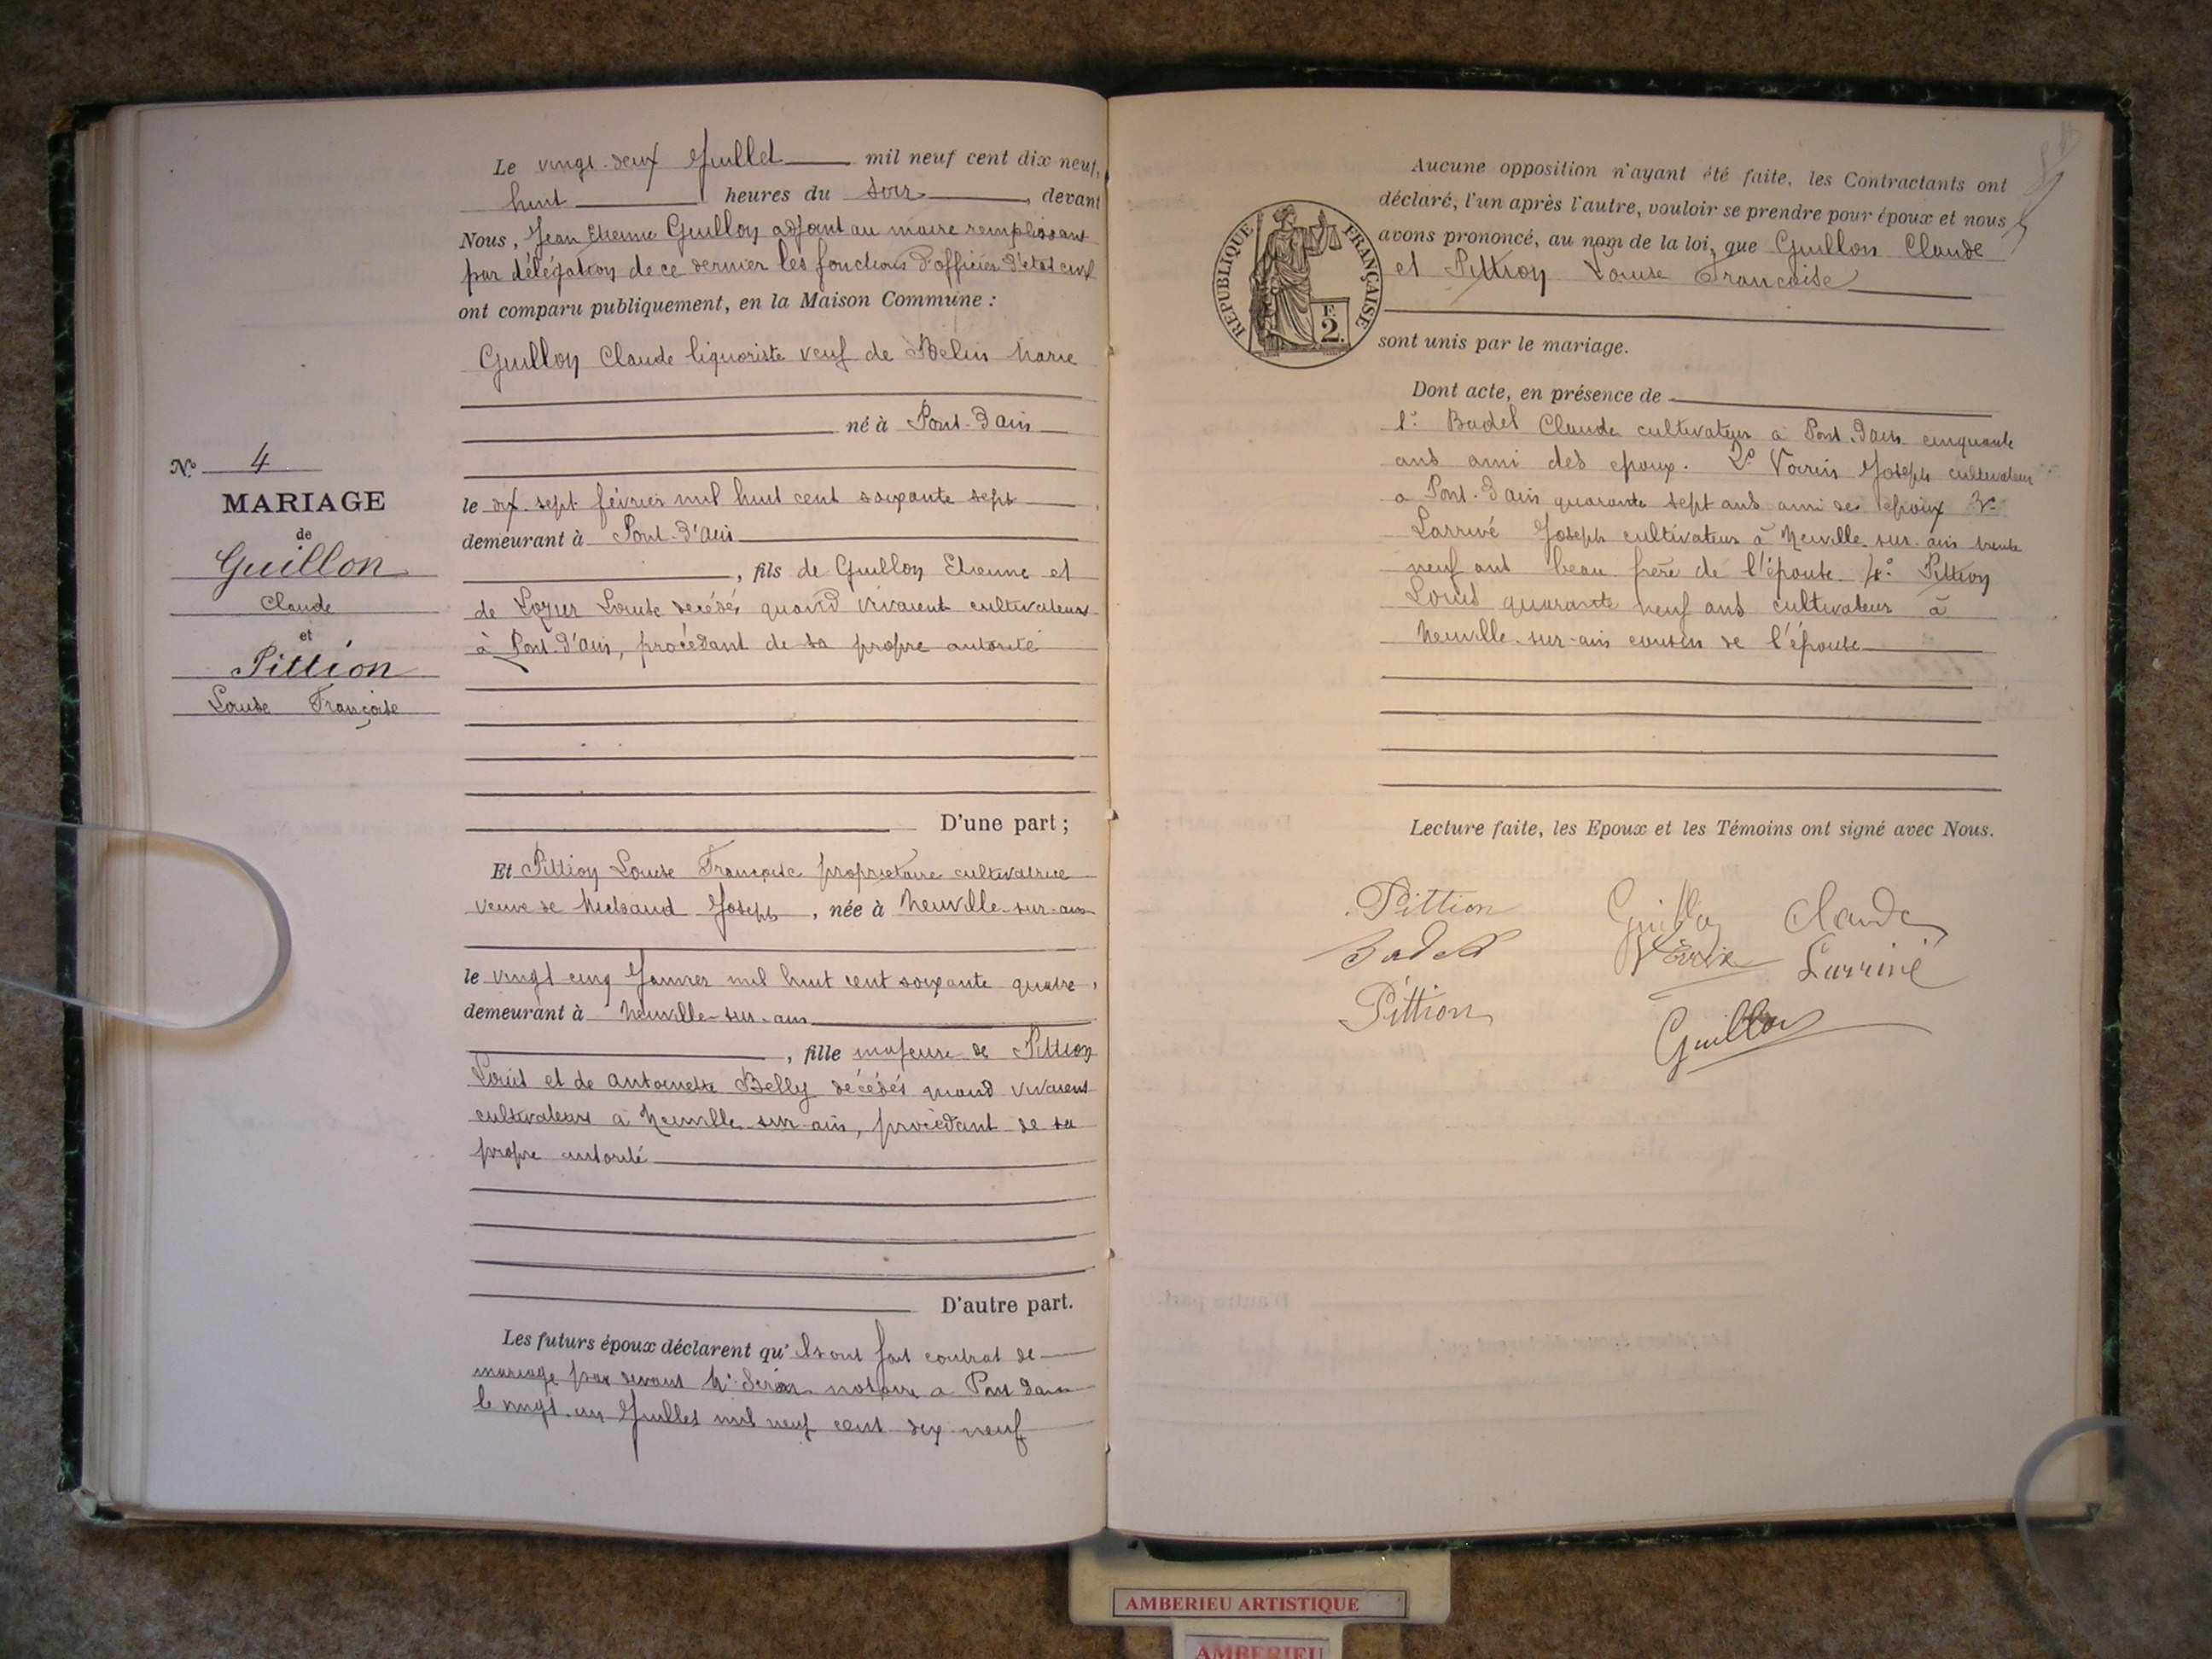 N.º 4
MARIAGE
de
Guillon
Claude
et
Pittion
Louise Françoise
Le vingt-deux Juillet mil neuf cent dix neuf,
huit heures du soir, devant
Nous, Jean Etienne Guillon adjoint au maire remplissant
par délégation de ce dernier les fonctions d'officier d'état civil
ont comparu publiquement, en la Maison Commune :
Guillon Claude liquoriste veuf de Belin Marie
né à Pont-d'ain
le dix-sept février mil huit cent soixante sept
demeurant à Pont-d'ain
, fils de Guillon Etienne et
de Louise décédés quand vivaient cultivateurs
à Pont-d'ain, procédant de sa propre autorité
D'une part ;
Et Pittion Louise Françoise propriétaire cultivatrice
veuve de Michaud Joseph, née à Neuville-sur-ain
le vingt-cinq Janvier mil huit cent soixante quatre,
demeurant à Neuville-sur-ain
, fille majeure de Pittion
Louis et de Antoinette Belly décédés quand vivaient
cultivateurs à Neuville-sur-ain, procédant de sa
propre autorité
D'autre part.
Les futurs époux déclarent qu'ils ont fait contrat de
mariage par devant Me notaire a Pont dain
le vingt-un Juillet mil neuf cent dix neuf
Aucune opposition n'ayant été faite, les Contractants ont
déclaré, l'un après l'autre, vouloir se prendre pour époux et nous
avons prononcé, au nom de la loi, que Guillon Claude
et Pittion Louise Francoise
RÉPUBLIQUE FRANÇAISE
F.
2.
sont unis par le mariage.
Dont acte, en présence de
1º Badel Claude cultivateur à Pont-d'ain cinquante
ans ami des epoux. 2º Voirin Joseph cultivateur
a Pont-d'ain quarante sept ans ami des epoux 3º
Larrivé Joseph cultivateur à Neuville-sur-ain trente
neuf ans beau frère de l'épouse 4º Pittion
Louis quarante neuf ans cultivateur à
Neuville-sur-ain cousin de l'épouse
Lecture faite, les Epoux et les Témoins ont signé avec Nous.
Pittion Guillon Claude
Badel Voirin Larrivé
Pittion
Guillon
AMBERIEU ARTISTIQUE
AMBERIEU